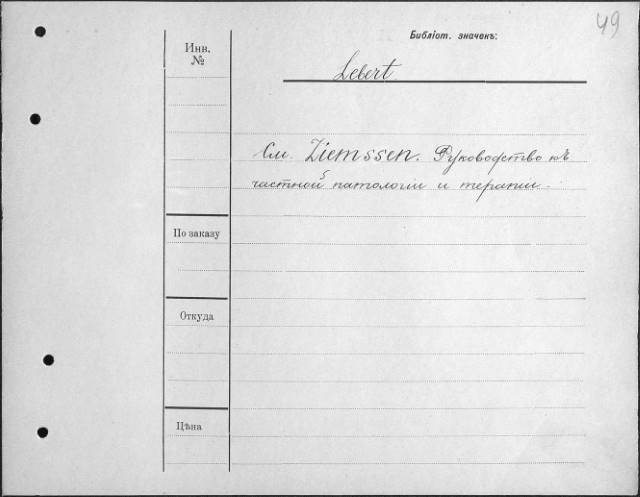 49
Библіот. значекъ:
Инв.
№
Lebert.
См. Ziemssen. Руководство къ
частной патологіи и терапіи.
По заказу
Откуда
Цѣна